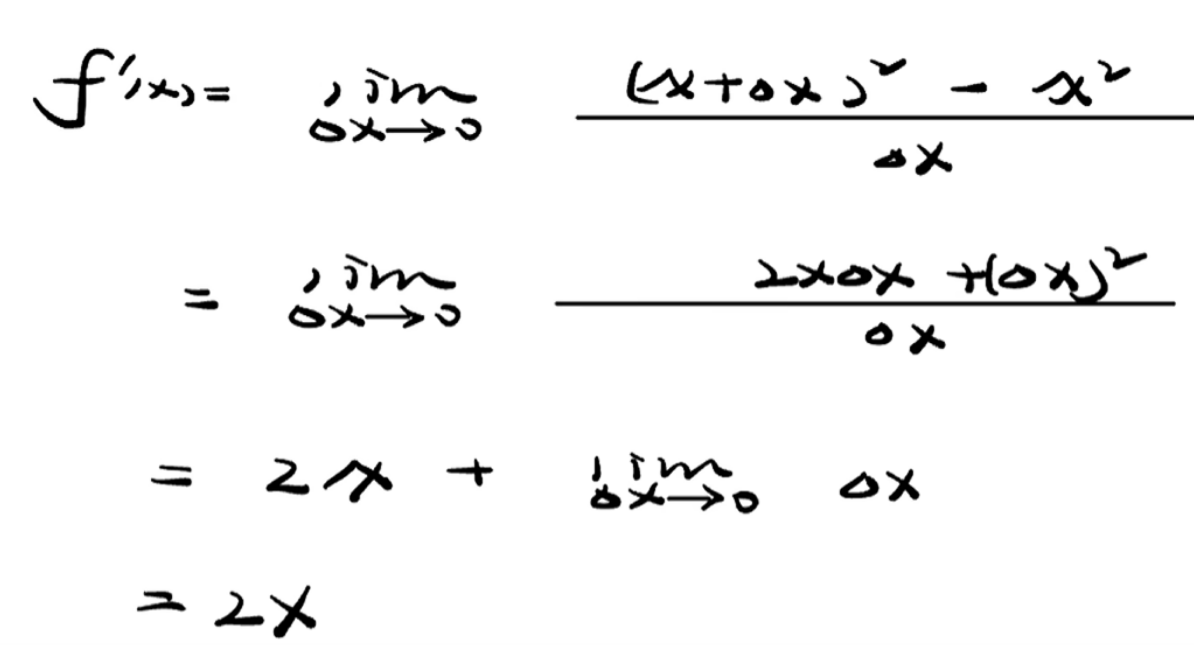 f'(x) = lim Δx→0 ((x+Δx)² - x²) / Δx
= lim Δx→0 (2xΔx + (Δx)²) / Δx
= 2x + lim Δx→0 Δx
= 2x